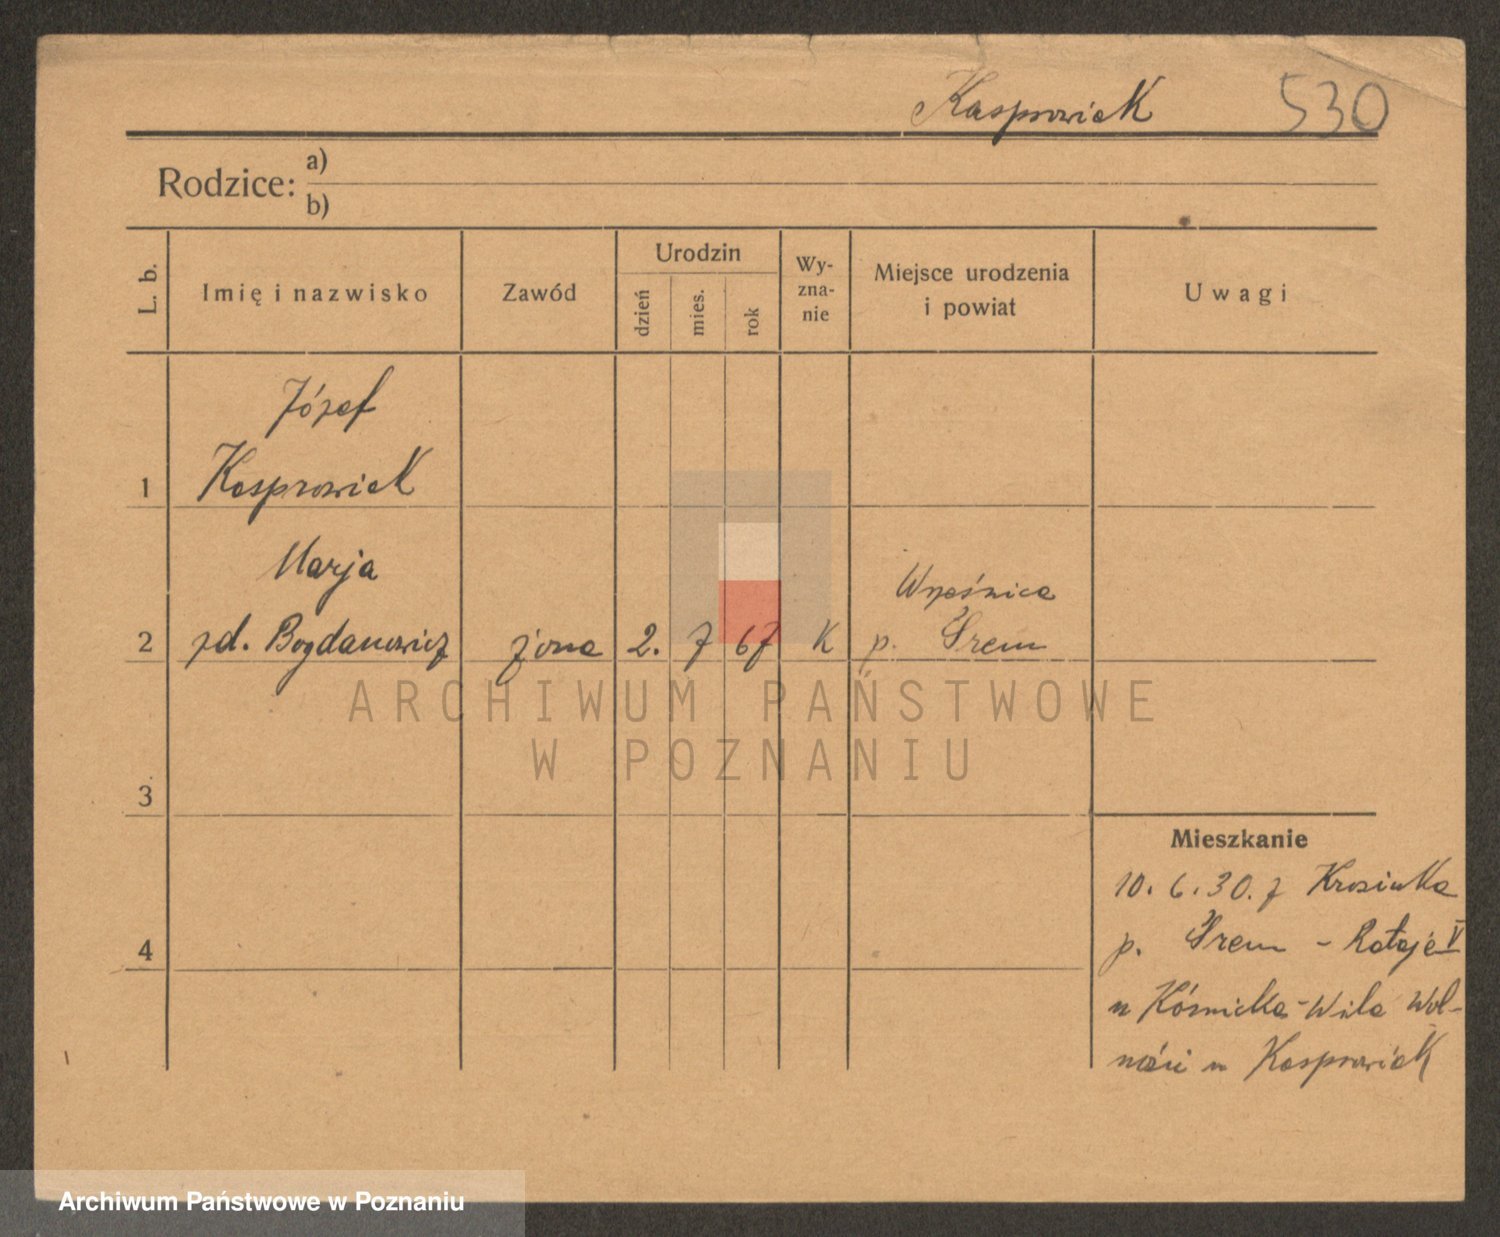 Kasprowiak 530
Rodzice: a)
b)
L. b.
Imię i nazwisko
Zawód
Urodzin
dzień
mies.
rok
Wy-
zna-
nie
Miejsce urodzenia
i powiat
Uwagi
Józef
1 Kasprowiak
Marja
2 zd. Bogdanowicz żona 2. 7 67 K
p. Śrem
ARCHIWUM PAŃSTWOWE
W POZNANIU
3
Mieszkanie
10. 6. 30. z Krosinka
4
p. Śrem - Rataje V
u - Wola Wol-
ności u Kasprowiak
Archiwum Państwowe w Poznaniu